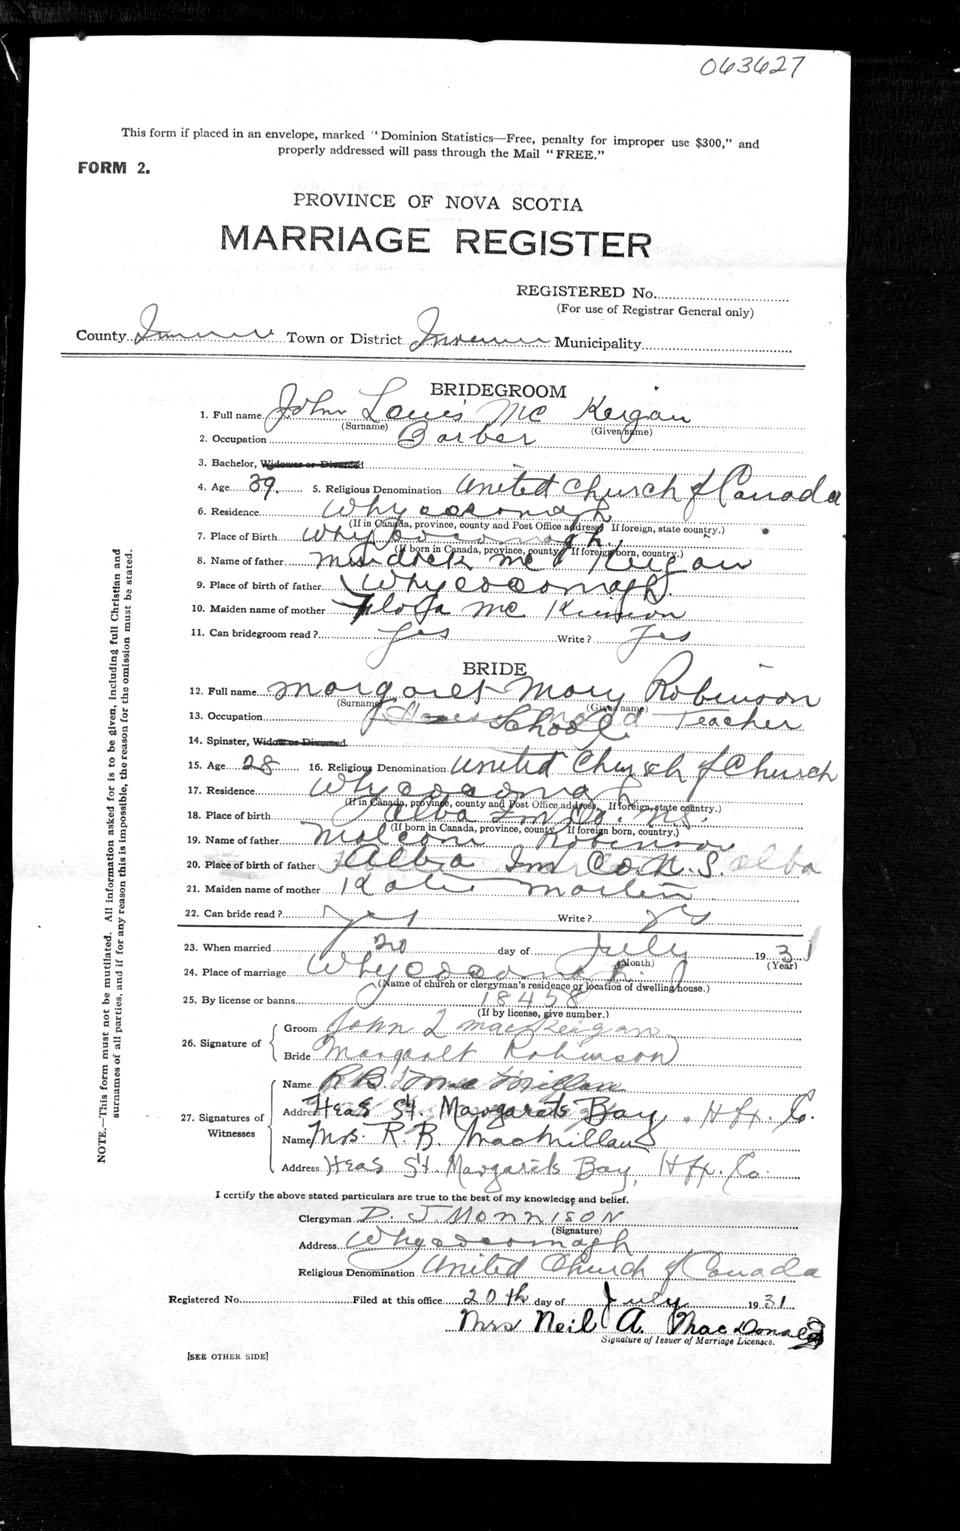 063627
This form if placed in an envelope, marked "Dominion Statistics—Free, penalty for improper use $300," and
properly addressed will pass through the Mail "FREE."
FORM 2.
PROVINCE OF NOVA SCOTIA
MARRIAGE REGISTER
REGISTERED No.
(For use of Registrar General only)
County Town or District Inverness Municipality
BRIDEGROOM
1. Full name John Louis Mc Keigan
(Surname) (Given name)
2. Occupation Barber
3. Bachelor, Widower or Divorced
4. Age 39. 5. Religious Denomination United Church of Canada
6. Residence Whycocomagh
(If in Canada, province, county and Post Office address. If foreign, state country.)
7. Place of Birth Whycocomagh
(If born in Canada, province, county. If foreign born, country.)
8. Name of father Murdock Mc Keigan
9. Place of birth of father Whycocomagh.
10. Maiden name of mother Flora Mc Kinnon
11. Can bridegroom read? Yes Write? Yes
BRIDE
12. Full name Margaret Mary Robinson
(Surname) (Given name)
13. Occupation School Teacher
14. Spinster, Widow or Divorced
15. Age 28 16. Religious Denomination United Church of Church
17. Residence Whycocomagh
(If in Canada, province, county and Post Office address. If foreign, state country.)
18. Place of birth Alba N.S.
(If born in Canada, province, county. If foreign born, country.)
19. Name of father Malcom Robinson
20. Place of birth of father Alba Inv Co. N.S. Alba
21. Maiden name of mother Katie Martin
22. Can bride read? Yes Write? Yes
23. When married 20 day of July 1931
(Month) (Year)
24. Place of marriage Whycocomagh.
(Name of church or clergyman's residence or location of dwelling house.)
25. By license or banns 18458
(If by license, give number.)
26. Signature of
Groom John L MacKeigan
Bride Margaret Robinson
27. Signatures of
Witnesses
Name R B. MacMillan
Address Head St. Margarets Bay, Hfx. Co.
Name Mrs. R. B. MacMillan
Address Head St. Margarets Bay, Hfx. Co.
I certify the above stated particulars are true to the best of my knowledge and belief.
Clergyman D. J Morrison
(Signature)
Address Whycocomagh
Religious Denomination United Church of Canada
Registered No. Filed at this office 20th day of July 1931
Mrs Neil A. MacDonald
Signature of Issuer of Marriage Licenses.
[SEE OTHER SIDE]
NOTE.—This form must not be mutilated. All information asked for is to be given, including full Christian and
surnames of all parties, and if for any reason this is impossible, the reason for the omission must be stated.